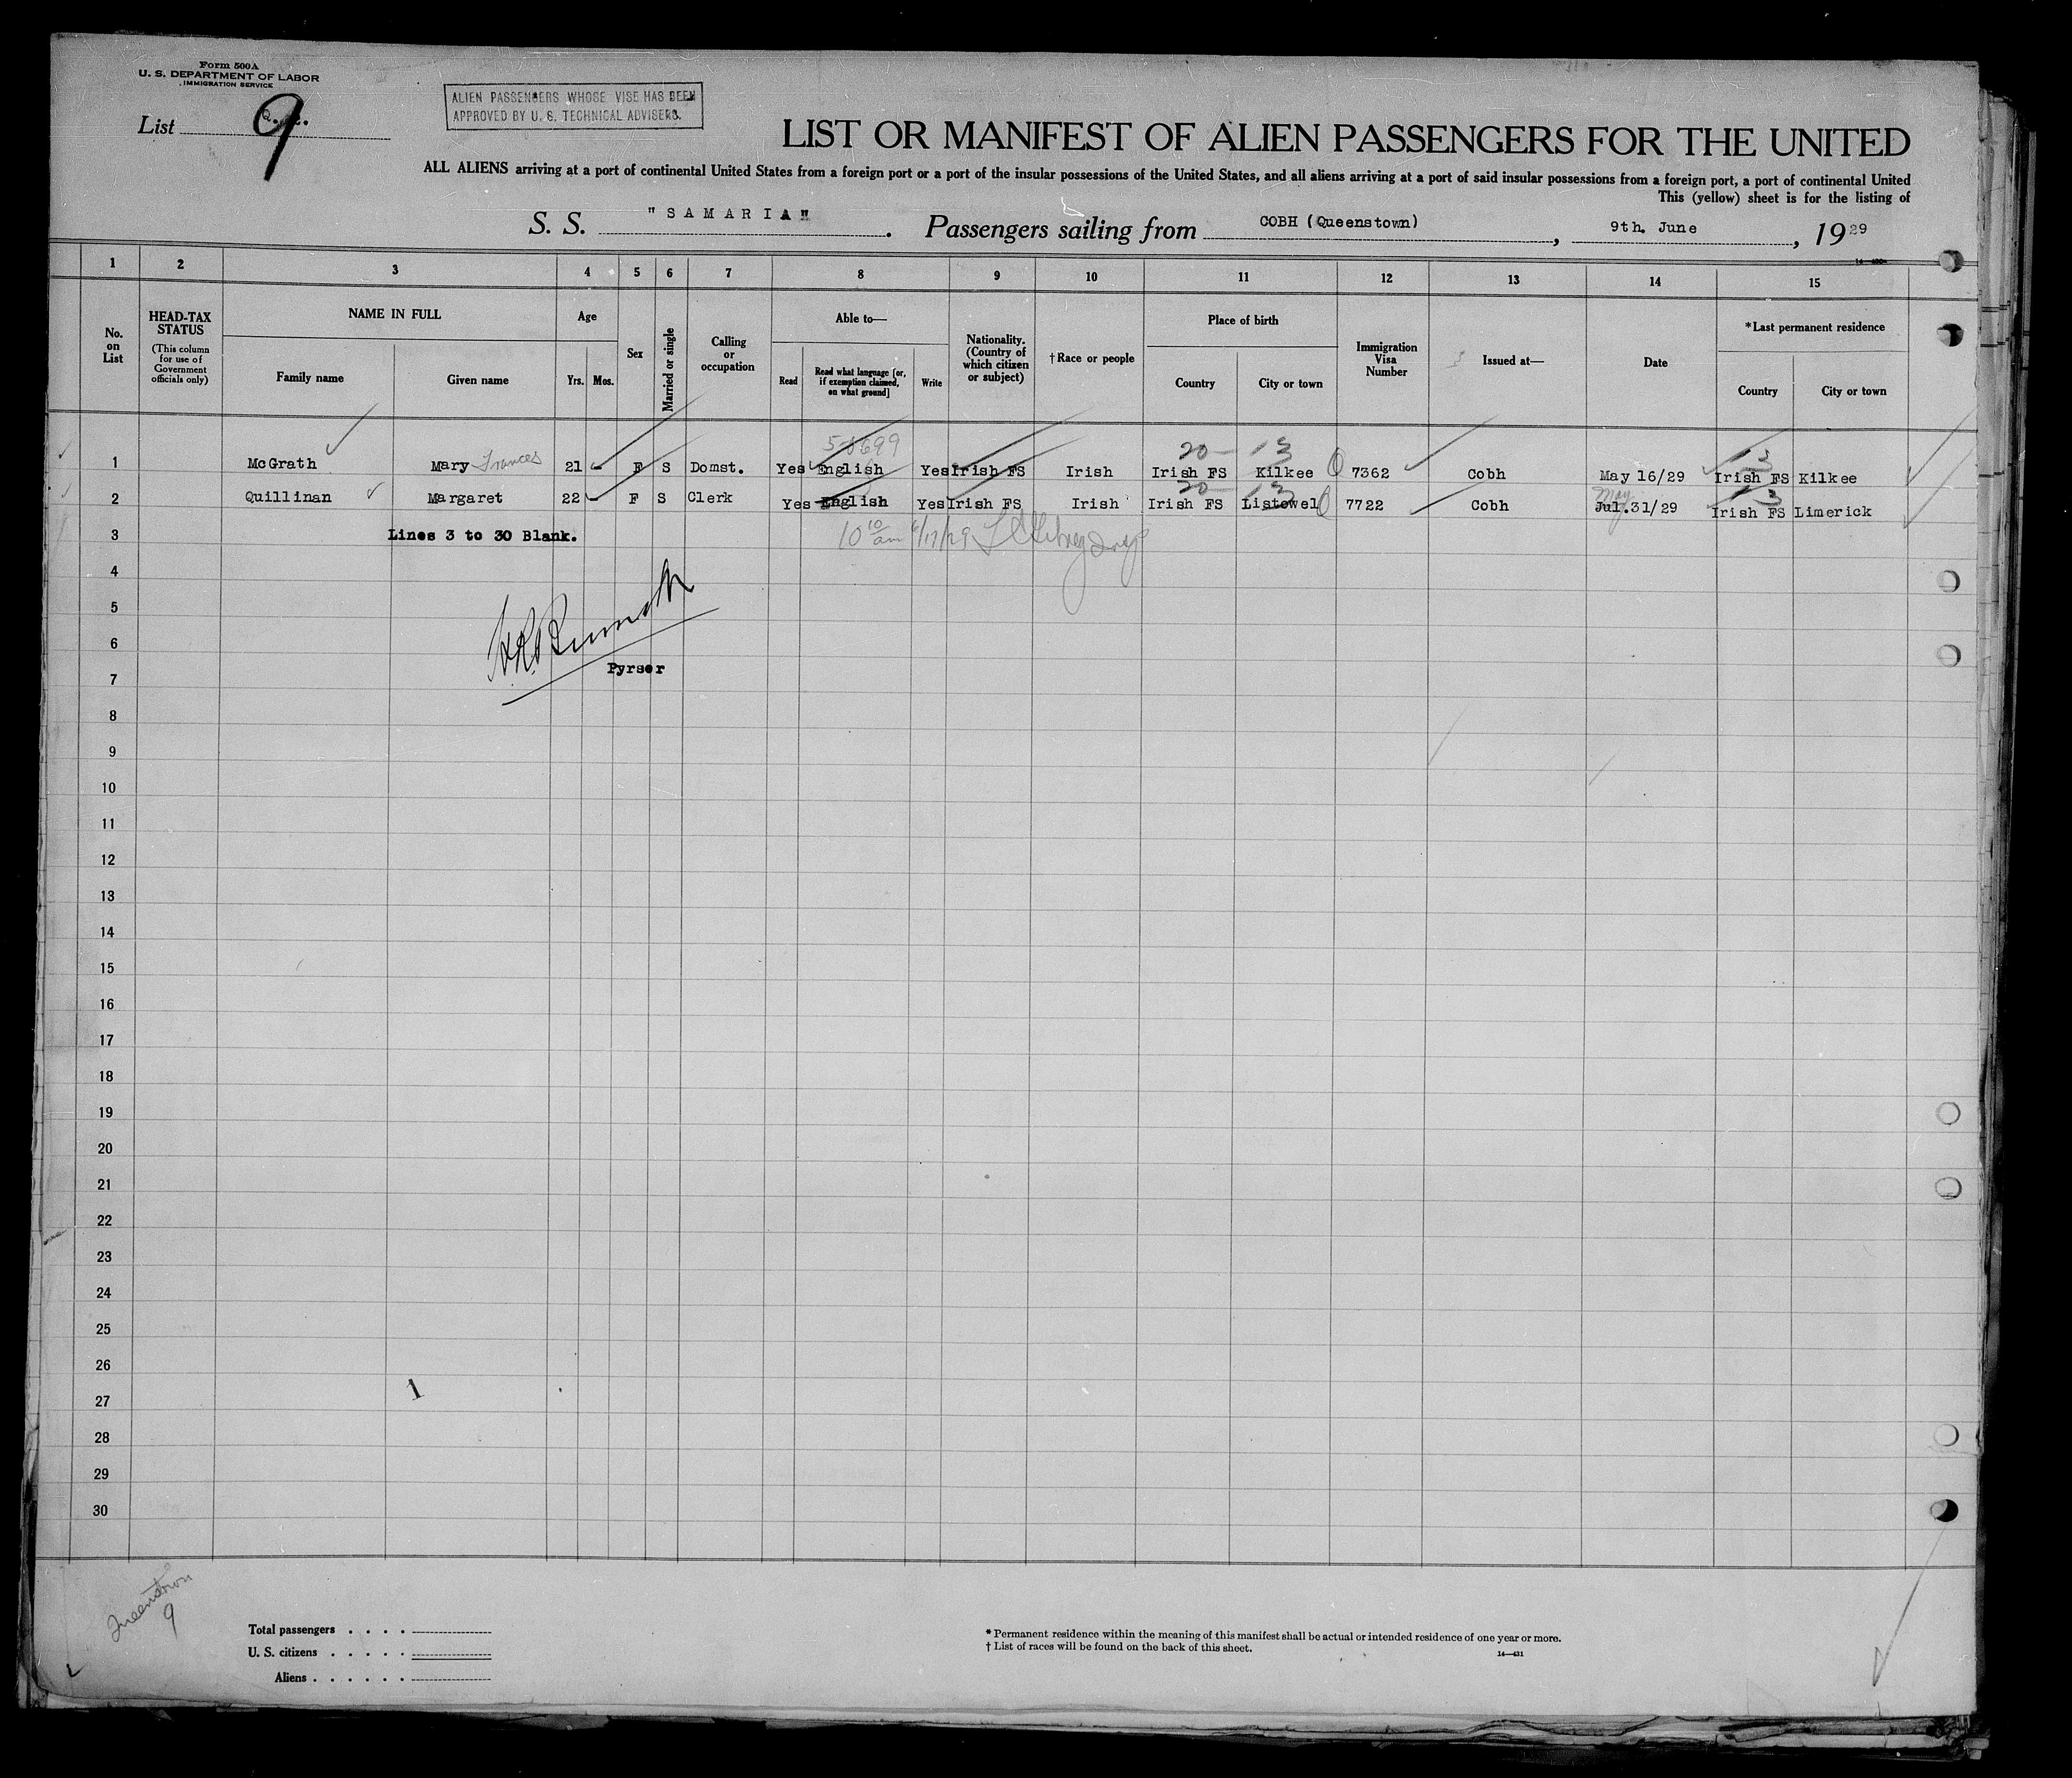 Form 500A
U. S. DEPARTMENT OF LABOR
IMMIGRATION SERVICE
List 9
ALIEN PASSENGERS WHOSE VISE HAS BEEN
APPROVED BY U. S. TECHNICAL ADVISERS.
LIST OR MANIFEST OF ALIEN PASSENGERS FOR THE UNITED
ALL ALIENS arriving at a port of continental United States from a foreign port or a port of the insular possessions of the United States, and all aliens arriving at a port of said insular possessions from a foreign port, a port of continental United
This (yellow) sheet is for the listing of
S. S. "SAMARIA". Passengers sailing from COBH (Queenstown), 9th. June, 1929
1 2 3 4 5 6 7 8 9 10 11 12 13 14 15
No. on List
HEAD-TAX STATUS
(This column for use of Government officials only)
NAME IN FULL
Family name
Given name
Age
Yrs.
Mos.
Sex
Married or single
Calling or occupation
Able to—
Read
Read what language [or, if exemption claimed, on what ground]
Write
Nationality. (Country of which citizen or subject)
†Race or people
Place of birth
Country
City or town
Immigration Visa Number
Issued at—
Date
*Last permanent residence
Country
City or town
20— 13 13
1 McGrath Mary Frances 21 - F S Domst. Yes English Yes Irish FS Irish Irish FS Kilkee 7362 Cobh May 16/29 Irish FS Kilkee
20— 13 May 13
2 Quillinan Margaret 22 - F S Clerk Yes English Yes Irish FS Irish Irish FS Listowel 7722 Cobh Jul.31/29 Irish FS Limerick
3 Lines 3 to 30 Blank. 10 10 am 6/17/29
4
5
6
Pyrser
7
8
9
10
11
12
13
14
15
16
17
18
19
20
21
22
23
24
25
26
1
27
28
29
30
Queenstown
9
Total passengers . . . .
U. S. citizens . . . . .
Aliens . . . . . .
* Permanent residence within the meaning of this manifest shall be actual or intended residence of one year or more.
† List of races will be found on the back of this sheet.
14—431